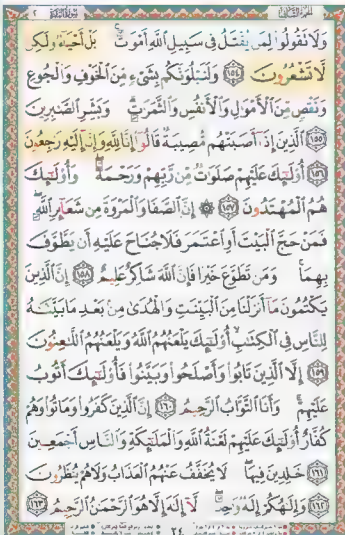 الجزء الثاني سورة البقرة ٢
وَلَا تَقُولُوا۟ لِمَن يُقْتَلُ فِى سَبِيلِ ٱللَّهِ أَمْوَٰتٌۢ ۚ بَلْ أَحْيَآءٌ وَلَٰكِن
لَّا تَشْعُرُونَ ﴿١٥٤﴾ وَلَنَبْلُوَنَّكُم بِشَىْءٍ مِّنَ ٱلْخَوْفِ وَٱلْجُوعِ
وَنَقْصٍ مِّنَ ٱلْأَمْوَٰلِ وَٱلْأَنفُسِ وَٱلثَّمَرَٰتِ ۗ وَبَشِّرِ ٱلصَّٰبِرِينَ
﴿١٥٥﴾ ٱلَّذِينَ إِذَآ أَصَٰبَتْهُم مُّصِيبَةٌ قَالُوٓا۟ إِنَّا لِلَّهِ وَإِنَّآ إِلَيْهِ رَٰجِعُونَ
﴿١٥٦﴾ أُو۟لَٰٓئِكَ عَلَيْهِمْ صَلَوَٰتٌ مِّن رَّبِّهِمْ وَرَحْمَةٌ ۖ وَأُو۟لَٰٓئِكَ
هُمُ ٱلْمُهْتَدُونَ ﴿١٥٧﴾ ۞ إِنَّ ٱلصَّفَا وَٱلْمَرْوَةَ مِن شَعَآئِرِ ٱللَّهِ ۖ
فَمَنْ حَجَّ ٱلْبَيْتَ أَوِ ٱعْتَمَرَ فَلَا جُنَاحَ عَلَيْهِ أَن يَطَّوَّفَ
بِهِمَا ۚ وَمَن تَطَوَّعَ خَيْرًا فَإِنَّ ٱللَّهَ شَاكِرٌ عَلِيمٌ ﴿١٥٨﴾ إِنَّ ٱلَّذِينَ
يَكْتُمُونَ مَآ أَنزَلْنَا مِنَ ٱلْبَيِّنَٰتِ وَٱلْهُدَىٰ مِنۢ بَعْدِ مَا بَيَّنَّٰهُ
لِلنَّاسِ فِى ٱلْكِتَٰبِ ۙ أُو۟لَٰٓئِكَ يَلْعَنُهُمُ ٱللَّهُ وَيَلْعَنُهُمُ ٱللَّٰعِنُونَ
﴿١٥٩﴾ إِلَّا ٱلَّذِينَ تَابُوا۟ وَأَصْلَحُوا۟ وَبَيَّنُوا۟ فَأُو۟لَٰٓئِكَ أَتُوبُ
عَلَيْهِمْ ۚ وَأَنَا ٱلتَّوَّابُ ٱلرَّحِيمُ ﴿١٦٠﴾ إِنَّ ٱلَّذِينَ كَفَرُوا۟ وَمَاتُوا۟ وَهُمْ
كُفَّارٌ أُو۟لَٰٓئِكَ عَلَيْهِمْ لَعْنَةُ ٱللَّهِ وَٱلْمَلَٰٓئِكَةِ وَٱلنَّاسِ أَجْمَعِينَ
﴿١٦١﴾ خَٰلِدِينَ فِيهَا ۖ لَا يُخَفَّفُ عَنْهُمُ ٱلْعَذَابُ وَلَا هُمْ يُنظَرُونَ
﴿١٦٢﴾ وَإِلَٰهُكُمْ إِلَٰهٌ وَٰحِدٌ ۖ لَّآ إِلَٰهَ إِلَّا هُوَ ٱلرَّحْمَٰنُ ٱلرَّحِيمُ ﴿١٦٣﴾
٢٤